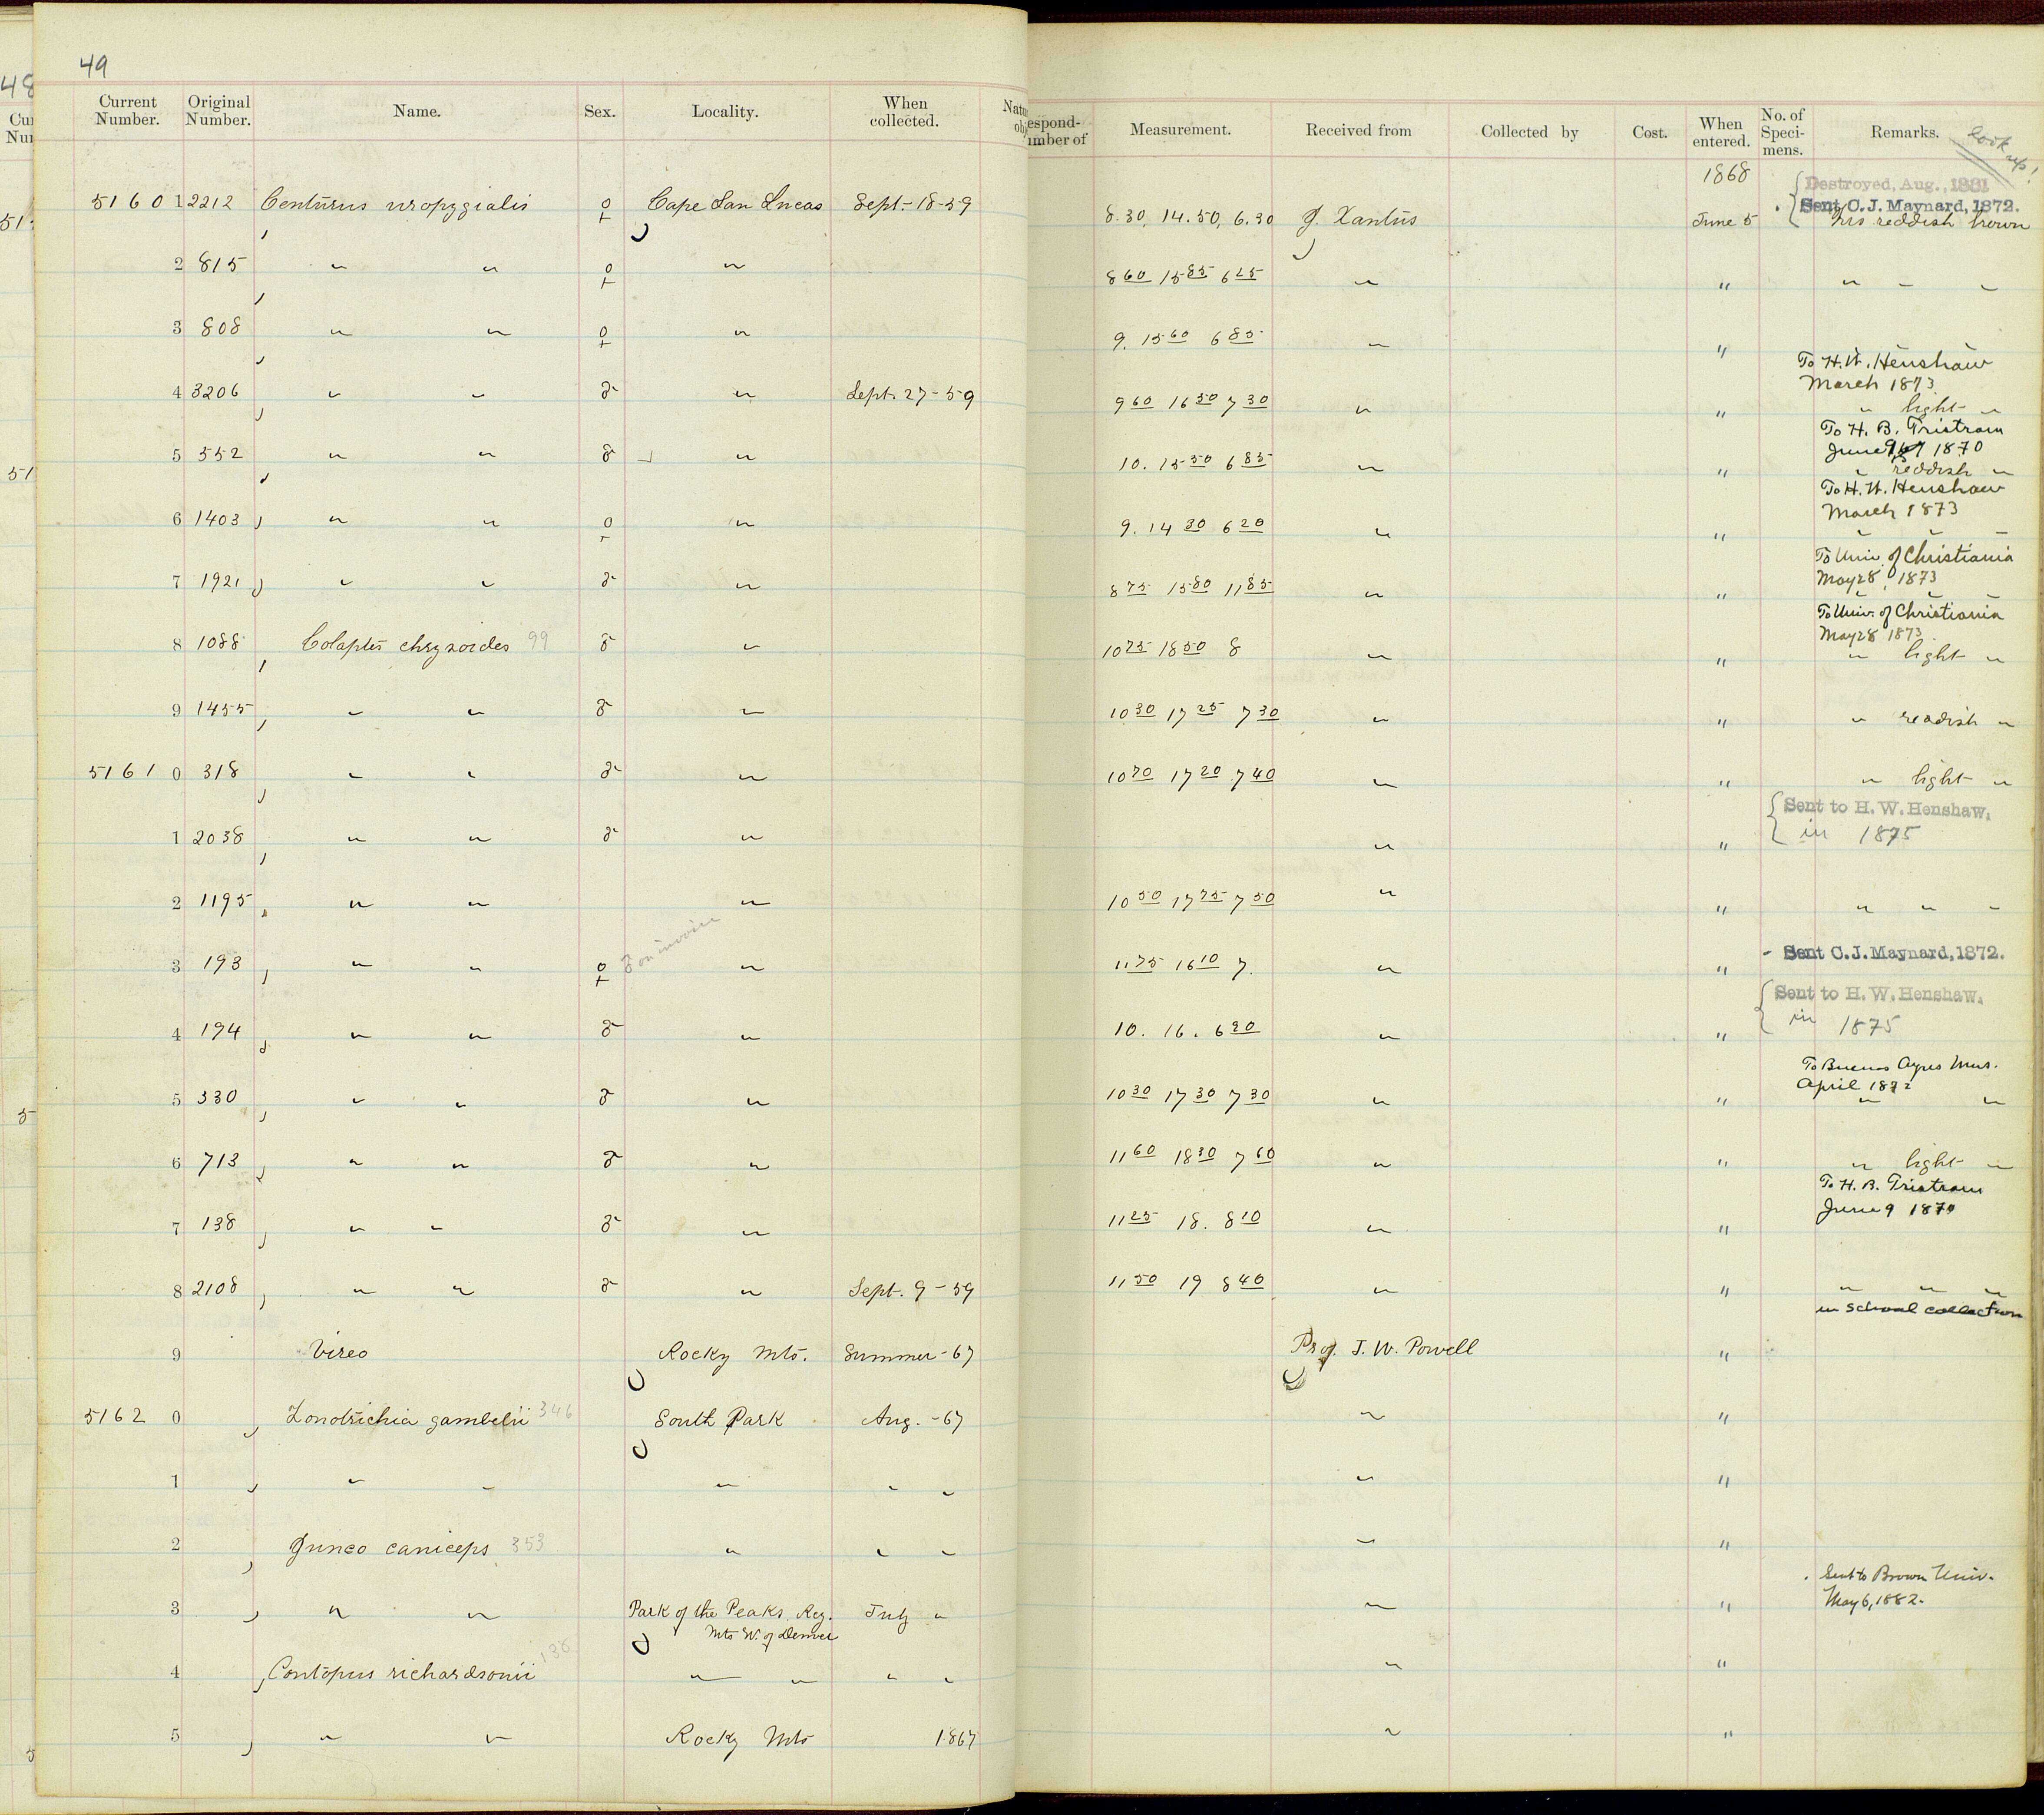 49
48
Current Number. Original Number. Name. Sex. Locality. When collected. Natu obj
espond- mber of Measurement. Received from Collected by Cost. When entered. No. of Speci- mens. Remarks. look up!
1868
Destroyed, Aug., 1881
Sent C. J. Maynard, 1872.
5160 1 2212 Centurus uropygialis ♀ Cape San Lucas Sept. 18-59 8.30, 14.50, 6.30 J. Xantus June 5 Iris reddish brown
2 815 " " ♀ " 8 60 15 85 6 25 " " " " "
3 808 " " ♀ " 9. 15 60 6 85 " "
To H. W. Henshaw
March 1873
4 3206 " " ♂ " Sept. 27-59 9 60 16 50 7 30 " " " light "
To H. B. Tristram
June 9 1870
5 552 " " ♂ " 10. 15 50 6 85 " " " reddish "
To H. W. Henshaw
March 1873
6 1403 " " ♀ " 9. 14 30 6 20 " " " " "
To Univ. of Christiania
May 28, 1873
7 1921 " " ♂ " 8 75 15 80 11 85 " " " " "
To Univ. of Christiania
May 28 1873
8 1088 Colaptes chrysoides 99 ♂ " 10 75 18 50 8 " " " light "
9 1455 " " ♂ " 10 30 17 25 7 30 " " " reddish "
5161 0 318 " " ♂ " 10 70 17 20 7 40 " " " light "
Sent to H. W. Henshaw,
1 2038 " " ♂ " " " in 1875
2 1195 " " " 10 50 17 75 7 50 " " " " "
3 193 " " ♀ " 11 75 16 10 7. " " Sent C. J. Maynard, 1872.
Sent to H. W. Henshaw,
4 194 " " ♂ " 10. 16. 6 90 " " in 1875
To Buenos Ayres Mus.
April 1872
5 330 " " ♂ " 10 30 17 30 7 30 " " " "
6 713 " " ♂ " 11 60 18 30 7 60 " " " light "
To H. B. Tristram
June 9 1870
7 138 " " ♂ " 11 25 18. 8 10 " "
8 2108 " " ♂ " Sept. 9-59 11 50 19 8 40 " " " " "
in school collection
9 Vireo Rocky Mts. Summer-67 Prof. J. W. Powell "
5162 0 Zonotrichia gambelii 346 South Park Aug. -67 " "
1 " " " " " " "
2 Junco caniceps 353 " " " " "
Sent to Brown Univ.
3 " " Park of the Peaks, Reg. July " " " May 6, 1882.
Mts W. of Denver
4 Contopus richardsonii 138 " " " " " "
5 " " Rocky Mts 1867 " "